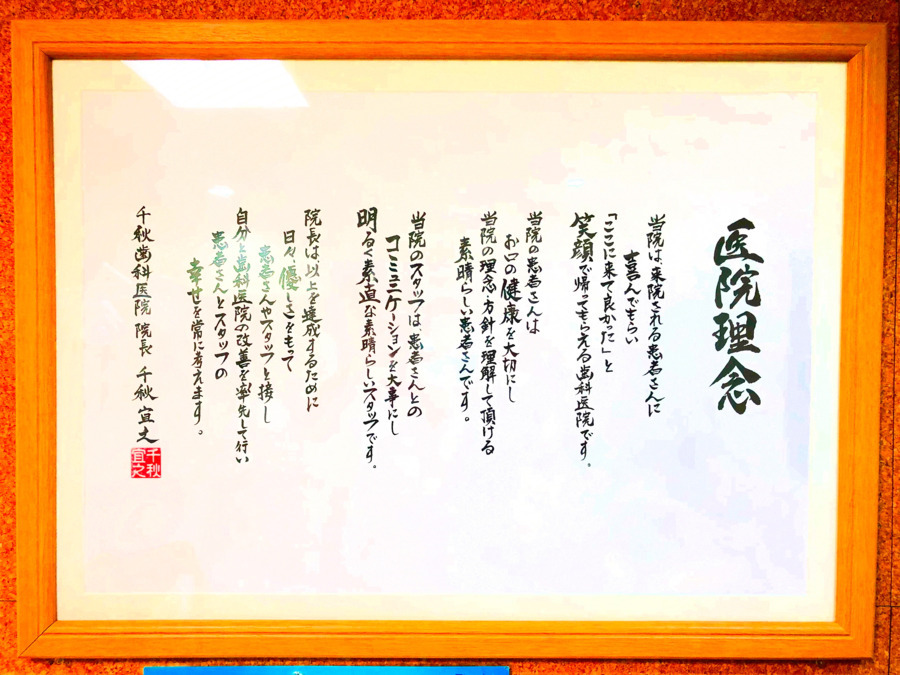 医院理念
当院は、来院される患者さんに
喜んでもらい
「ここに来て良かった」と
笑顔で帰ってもらえる歯科医院です。
当院の患者さんは
お口の健康を大切にし
当院の理念・方針を理解して頂ける
素晴らしい患者さんです。
当院のスタッフは、患者さんとの
コミュニケーションを大事にし
明るく素直な素晴らしいスタッフです。
院長は、以上を達成するために
日々、優しさをもって
患者さんやスタッフと接し
自分と歯科医院の改善を率先して行い
患者さんとスタッフの
幸せを常に考えます。
千秋歯科医院 院長 千秋 宜丈
千秋